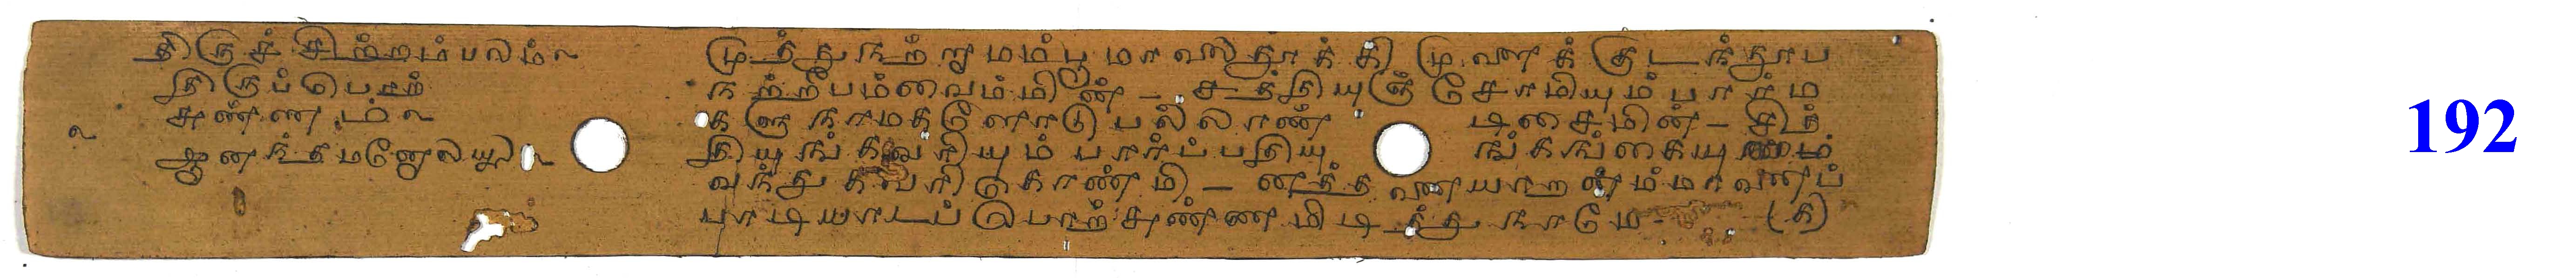 திருச் சிற்றம்பலம்௨
திருப்பொற்
சுண்ண ம்௨
ஆனந்தமனோலயம்௨
முத்துநற்றாமம்பூமாலைதூக்கி முளைக் குடந்தூப
நற்றீபம்வைம்மின் - சத்தியுஞ் சோமியும் பார்ம
களு நாமகளோடு பல்லாண் டிசைமின் - சித்
தியுங்கவுரியும் பார்ப்பதியு ங்கங்கையும்
வந்துகவரிகொண்மி - னத்த னையாறனம்மானைப்
பாடியாடப் பொற்சுண்ண மிடித்து நாமே - (க)
192